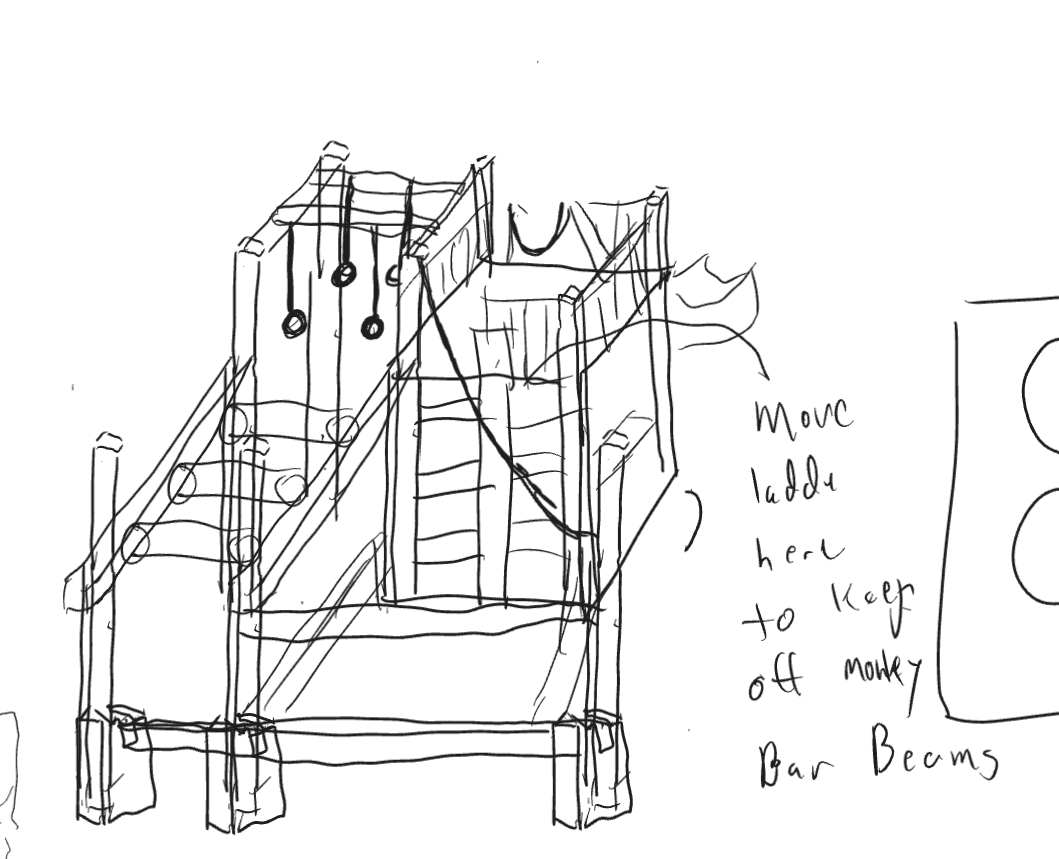 Move
ladder
here
to Keep
off monkey
Bar Beams